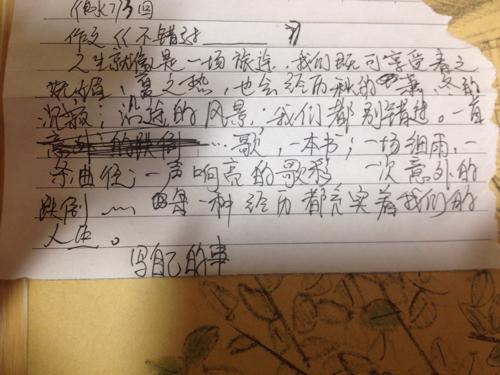 作文《不错过______》
人生就像是一场旅途,我们既可享受春之
妩媚、夏之热,也会经历秋的萧、冬的
沉寂;沿途的风景,我们都别错过。一首
歌,一本书;一场细雨,一
条曲径;一声响亮的歌 一次意外的
跌倒……每一种经历都充实着我们的
人生。
写自己的事